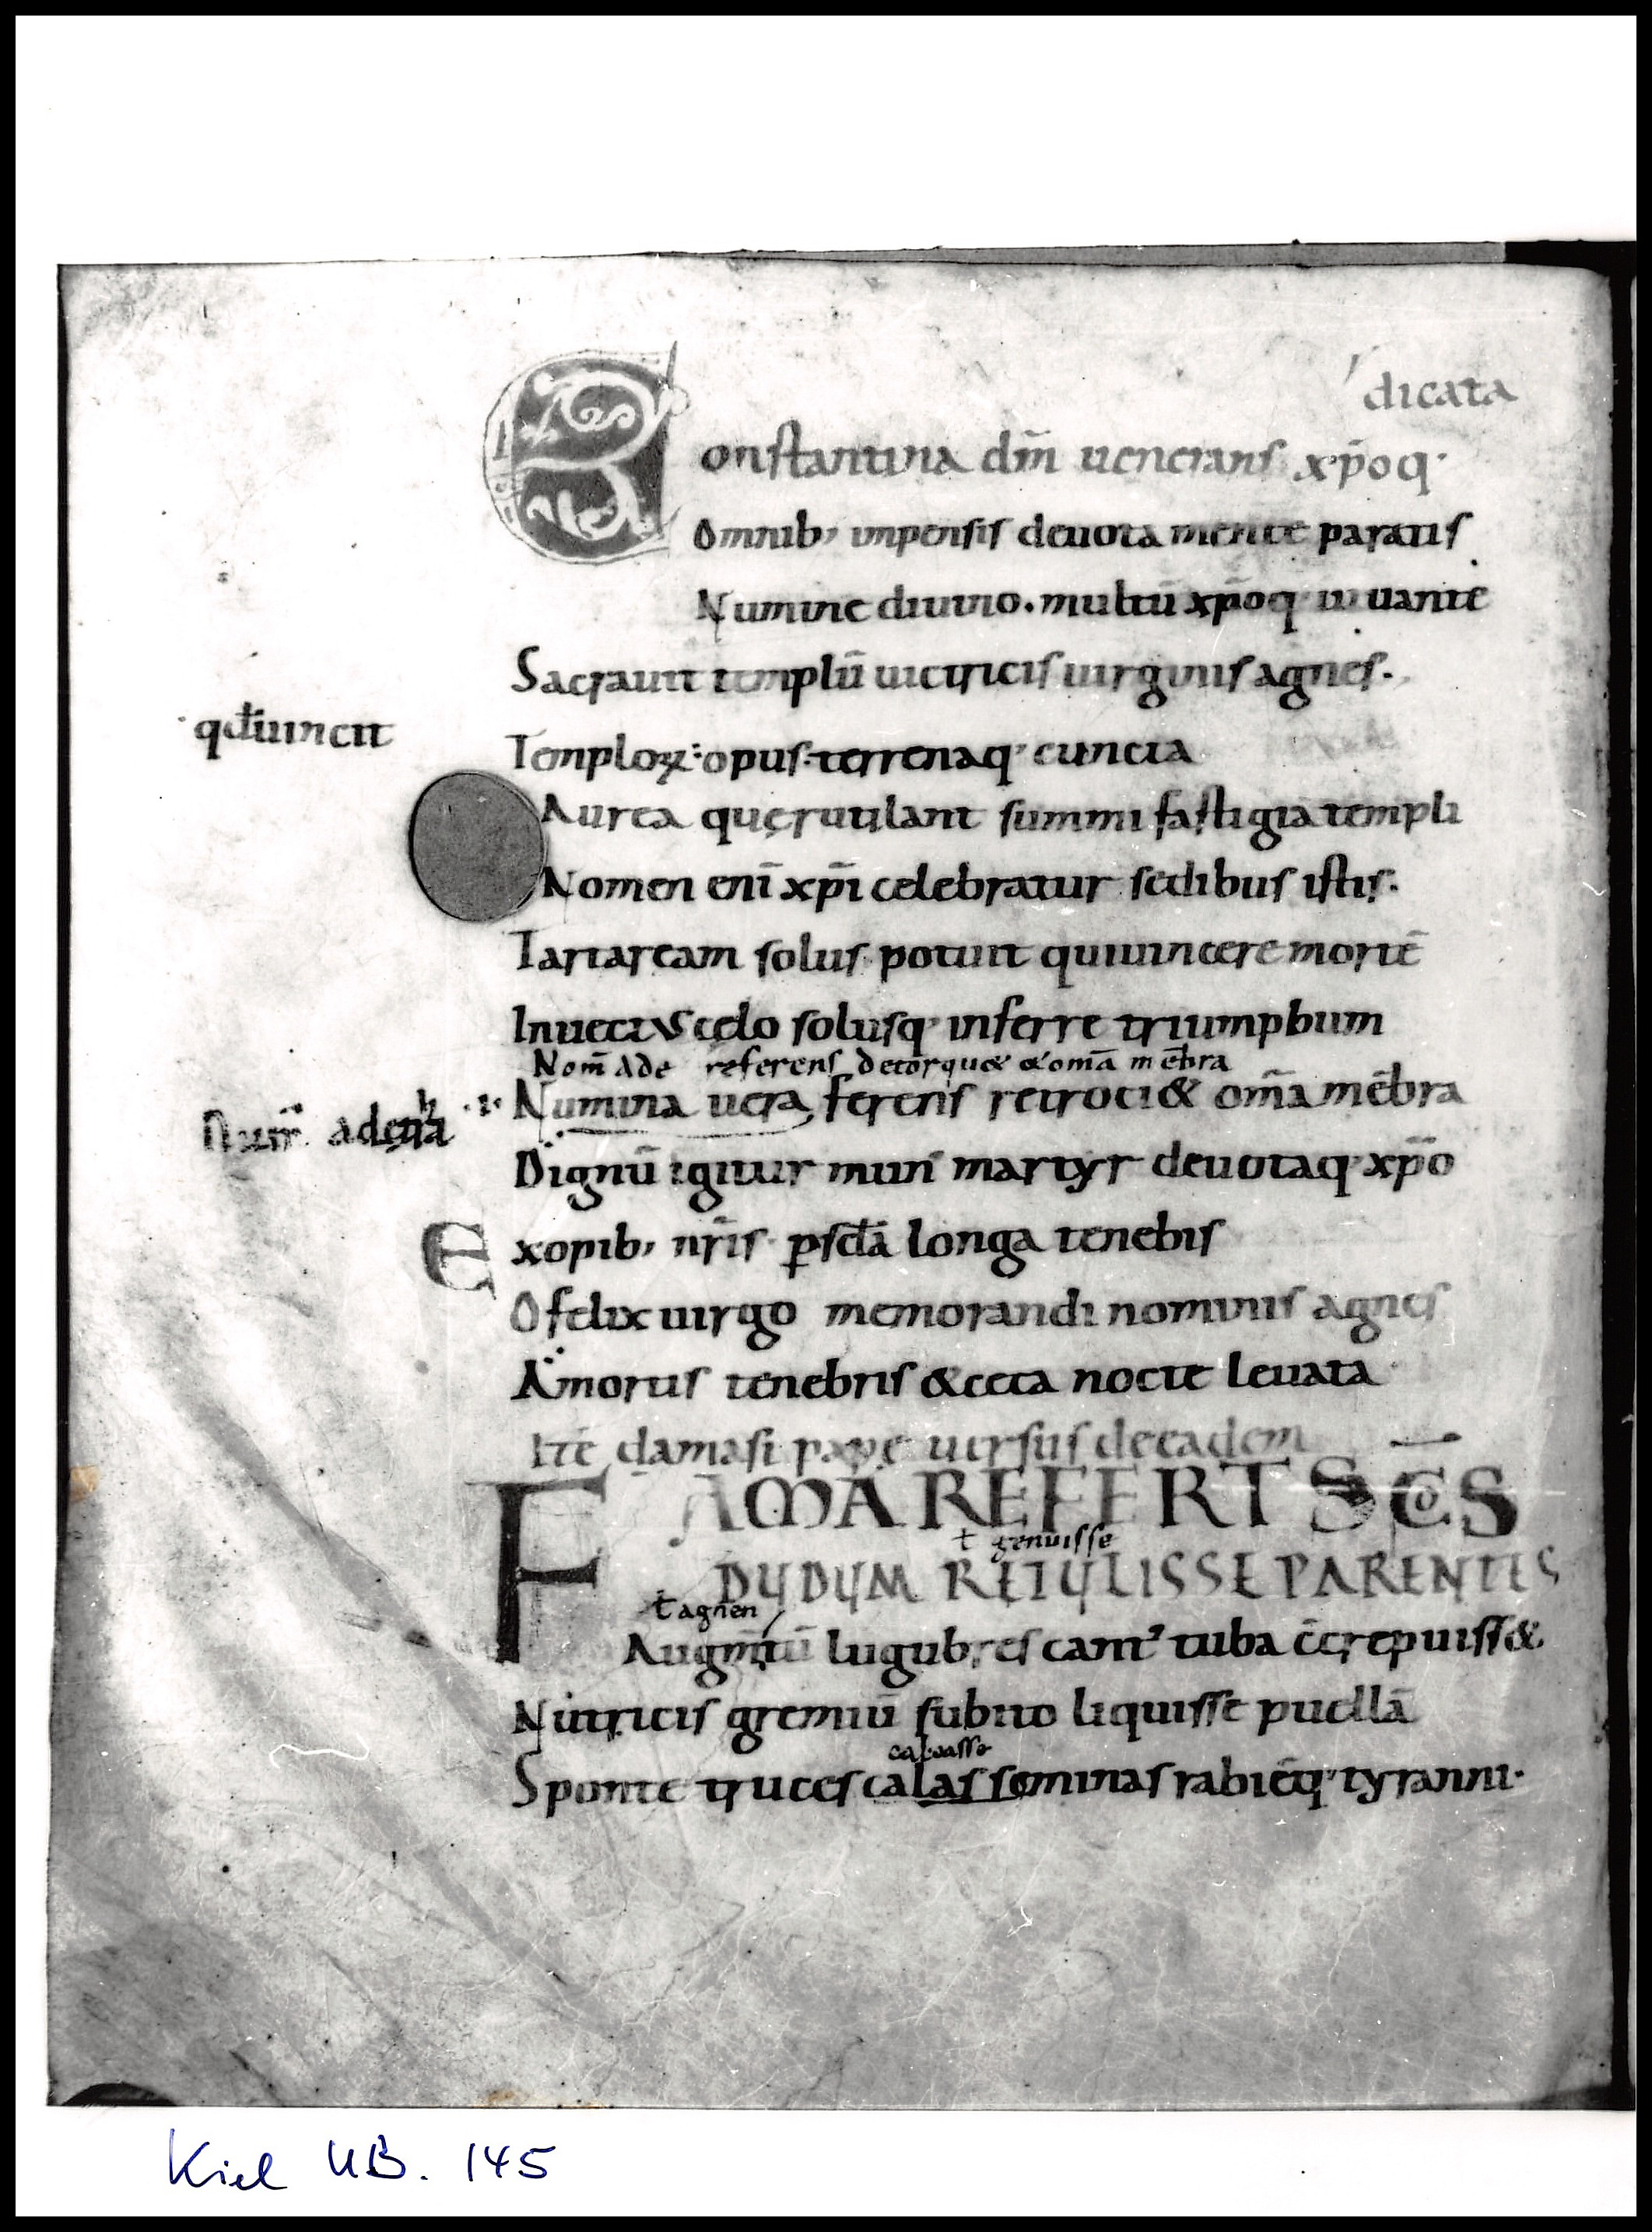 dicata
Constantina dm̄ uenerans xp̄oq·
Omnib; impensis deuota mente paratis
Numine diuino. multū xp̄oq· iuuante
Sacrauit templū uictricis uirginis agnes.
qd̄ uincit
Temploꝝ opus. terrenaq· cuncta
Aurea quę rutilant summi fastigia templi
Nomen eni̅ xp̄i celebratur sedibus istis.
Tartaream solus potuit qui uincere mortē
Inuectus cęlo solusq· inferre triumphum
Nom̄ ade referens detorqu& & om̄a mēbra
Numina uera, ferens retroci& om̄a mēbra
Dignū igitur mun̄ martyr deuotaq· xp̄o
Exopib; nr̄is p̱ scla̅ longa tenebis
O felix uirgo memorandi nominis agnes
A mortis tenebris & ceca nocte leuata
Itē damasi papę uersus de eadem
FAMA REFERT SC̄OS
ł genuisse
DUDUM RETULISSE PARENTES
ł agnen
Augm̄tū lugubres cant᾽ tuba c̄crepuiss&
Nutricis gremiū subito liquisse puellā
calcasse
Sponte truces calas seminas rabiēq· tyranni.
Kiel UB. 145